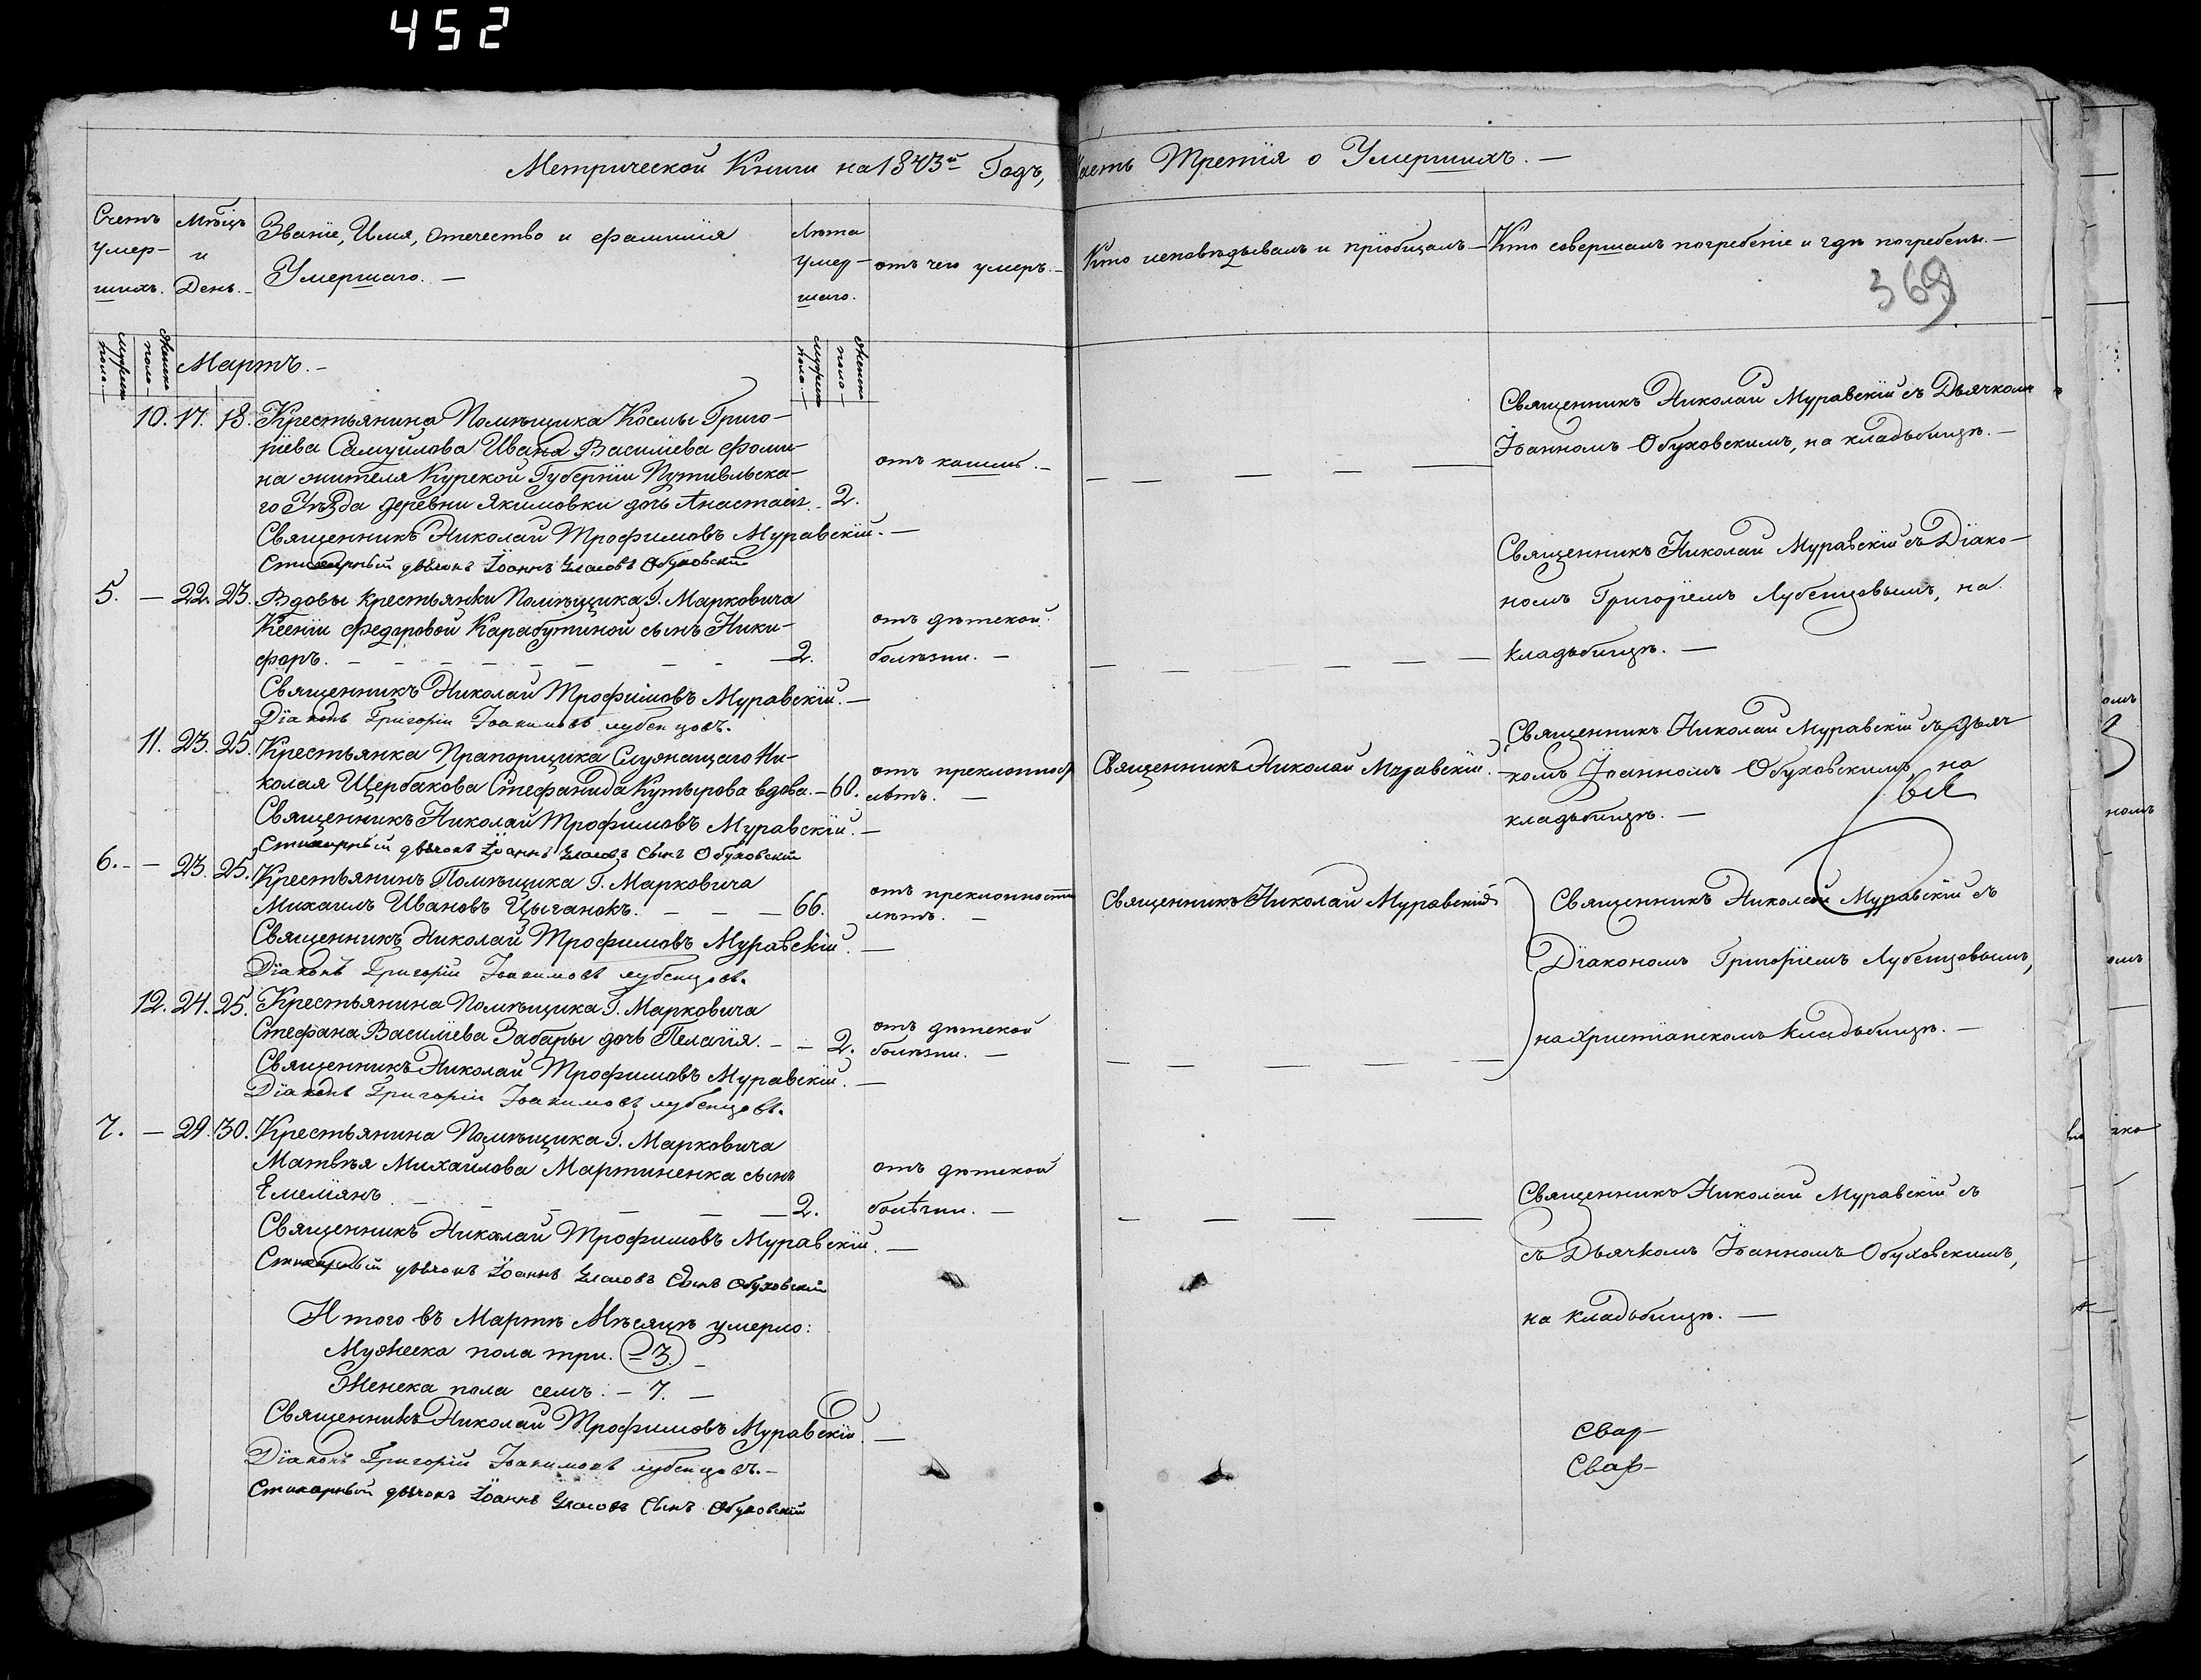 452
Метрической Книги на 1843й Годъ, Часть Третія о Умершихъ. —
Счетъ умер-
шихъ.
Мѣсцъ
и
День. -
Званіе, Имя, Отечество и фамилія
Умершаго. —
Лѣта
умер-
шаго.
отъ чего умеръ. -
Кто исповѣдывалъ и пріобщалъ —
Кто совершалъ погребеніе и гдѣ погребены. —
369
мужеска пола. —
женска пола —
Мартъ. -
мужеска пола. —
женска пола —
10. 17. 18. Крестьянина Помѣщика Космы Григо-
ріева Самуилова Ивана Василіева Фоми-
на жителя Курской Губерніи Путивльска-
го Уѣзда деревни Якимовки дочь Анастасія. - 2.
отъ кашлю. -
Священникъ Николай Муравскій съ Дьячкомъ
Іоанномъ Обуховскимъ, на кладьбищѣ. —
Священникъ Николай Трофимовъ Муравскій. —
Стихарный дьячокъ Іоаннъ Власовъ Обуховскій
5. — 22. 23. Вдовы крестьянки Помѣщика Г. Марковича
Ксеніи Федоровой Карабутиной сынъ Ники-
форъ. - - - - - - - - — 2.
отъ дѣтской
болѣзни. —
Священникъ Николай Муравскій съ Діако-
номъ Григоріемъ Лубенцовымъ, на
кладьбищѣ. —
Священникъ Николай Трофимовъ Муравскій. —
Діаконъ Григорій Іоакимовъ Лубенцовъ.
11. 23. 25. Крестьянка Прапорщика Служащаго Ни-
колая Щербакова Стефанида Кутырова вдова. - 60.
отъ преклонност
лѣтъ. —
Священникъ Николай Муравскій. -
Священникъ Николай Муравскій съ дьяч-
комъ Іоанномъ Обуховскимъ, на
кладьбищѣ. —
Священникъ Николай Трофимовъ Муравскій. —
Стихарный дьячокъ Іоаннъ Власовъ Сынъ Обуховскій
6. - — 23. 25. Крестьянинъ Помѣщика Г. Марковича
Михаилъ Ивановъ Цыганокъ. — — — 66.
отъ преклонности
лѣтъ. —
Священникъ Николай Муравскій
Священникъ Николай Муравскій съ
Діакономъ Григоріемъ Лубенцовымъ,
на Христіанскомъ кладьбищѣ. —
Священникъ Николай Трофимовъ Муравскій. —
Діаконъ Григорій Іоакимовъ Лубенцовъ.
12. 24. 25. Крестьянина Помѣщика Г. Марковича
Стефана Василіева Забары дочь Пелагія. - - 2.
отъ дѣтской
болѣзни. —
Священникъ Николай Трофимовъ Муравскій. —
Діаконъ Григорій Іоакимовъ Лубенцовъ.
7. — 29. 30. Крестьянина Помѣщика Г. Марковича
Матвѣя Михайлова Мартиненка сынъ
Емеліянъ - - - - - — 2.
отъ дѣтской
болѣзни. —
Священникъ Николай Муравскій съ
съ Дьячкомъ Іоанномъ Обуховскимъ,
на кладьбищѣ. —
Священникъ Николай Трофимовъ Муравскій. —
Стихарный дьячокъ Іоаннъ Власовъ Сынъ Обуховскій
Итого въ Мартѣ Мѣсяцѣ умерло:
Мужеска пола три. — 3. -
Женска пола семь. — 7. —
Священникъ Николай Трофимовъ Муравскій. —
Діаконъ Григорій Іоакимовъ Лубенцовъ. —
Стихарный дьячокъ Іоаннъ Власовъ Сынъ Обуховскій